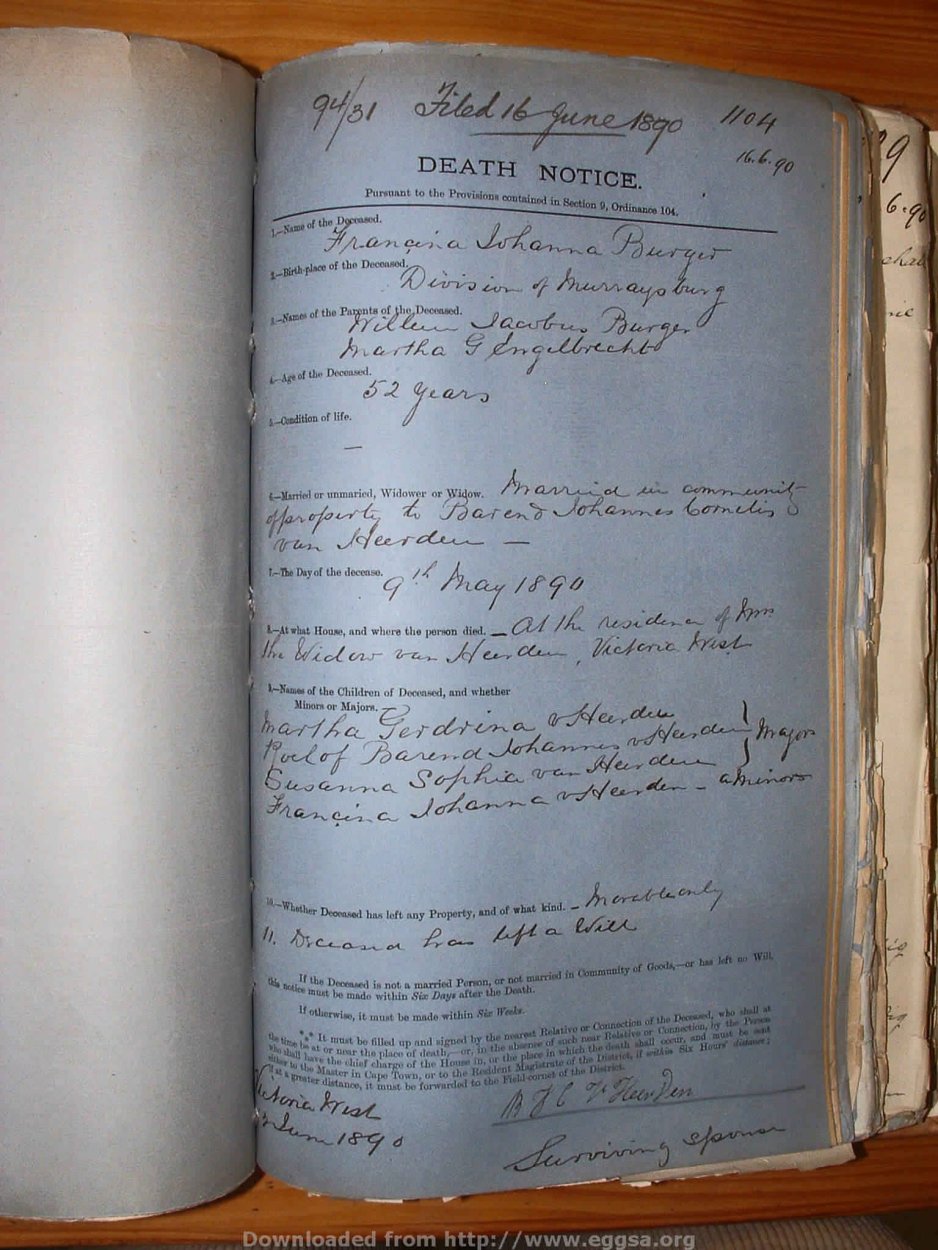 94/31 Filed 16 June 1890 1104
16.6.90
DEATH NOTICE.
Pursuant to the Provisions contained in Section 9, Ordinance 104.
1,—Name of the Deceased.
Francina Johanna Burger
2.—Birth-place of the Deceased.
Division of Murraysburg
3.—Names of the Parents of the Deceased.
Willem Jacobus Burger
Martha G Engelbrecht
4.—Age of the Deceased.
52 years
5.—Condition of life.
—
6.—Married or unmarried, Widower or Widow. Married in community
of property to Barend Johannes Cornelis
van Heerden —
7.—The Day of the decease. 9th May 1890
8.—At what House, and where the person died. — At the residence of Mrs
the Widow van Heerden, Victoria West
9.—Names of the Children of Deceased, and whether
Minors or Majors.—
Martha Gerdrina v Heerden
Roelof Barend Johannes v Heerden } Majors
Susanna Sophia van Heerden
Francina Johanna v Heerden - a Minor
10.—Whether Deceased has left any Property, and of what kind. — Movable only
11. Deceased has left a Will
If the Deceased is not a married Person, or not married in Community of Goods,—or has left no Will,
this notice must be made within Six Days after the Death.
If otherwise, it must be made within Six Weeks.
*** It must be filled up and signed by the nearest Relative or Connection of the Deceased, who shall at
the time be at or near the place of death,—or, in the absence of such near Relative or Connection, by the Person
who shall have the chief charge of the House in, or the place in which the death shall occur, and must be sent
either to the Master in Cape Town, or to the Resident Magistrate of the District, if within Six Hours' distance;
if at a greater distance, it must be forwarded to the Field-cornet of the District.
Victoria West
June 1890
B J C V Heerden
Surviving spouse
6.90
Downloaded from http://www.eggsa.org